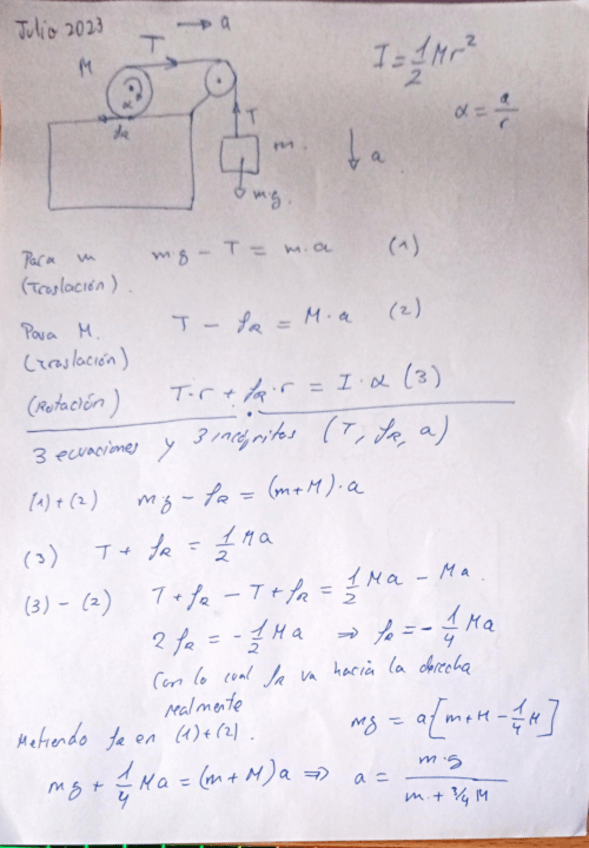 Julio 2023
→ a
T
M
I = 1/2 Mr²
α
α = a/r
fR
T
m.
a
mg.
Para m mg - T = m·a (1)
(Traslación).
Para M. T - fR = M·a (2)
(traslación)
(Rotación) T·r + fR·r = I·α (3)
3 ecuaciones y 3 incógnitas (T, fR, a)
(1)+(2) mg - fR = (m+M)·a
(3) T + fR = 1/2 Ma
(3)-(2) T + fR - T + fR = 1/2 Ma - Ma.
2 fR = -1/2 Ma ⇒ fR = -1/4 Ma
Con lo cual fR va hacia la derecha
realmente
Metiendo fR en (1)+(2). mg = a[m+M-1/4M]
mg + 1/4 Ma = (m+M)a ⇒ a = m·g / m + 3/4 M